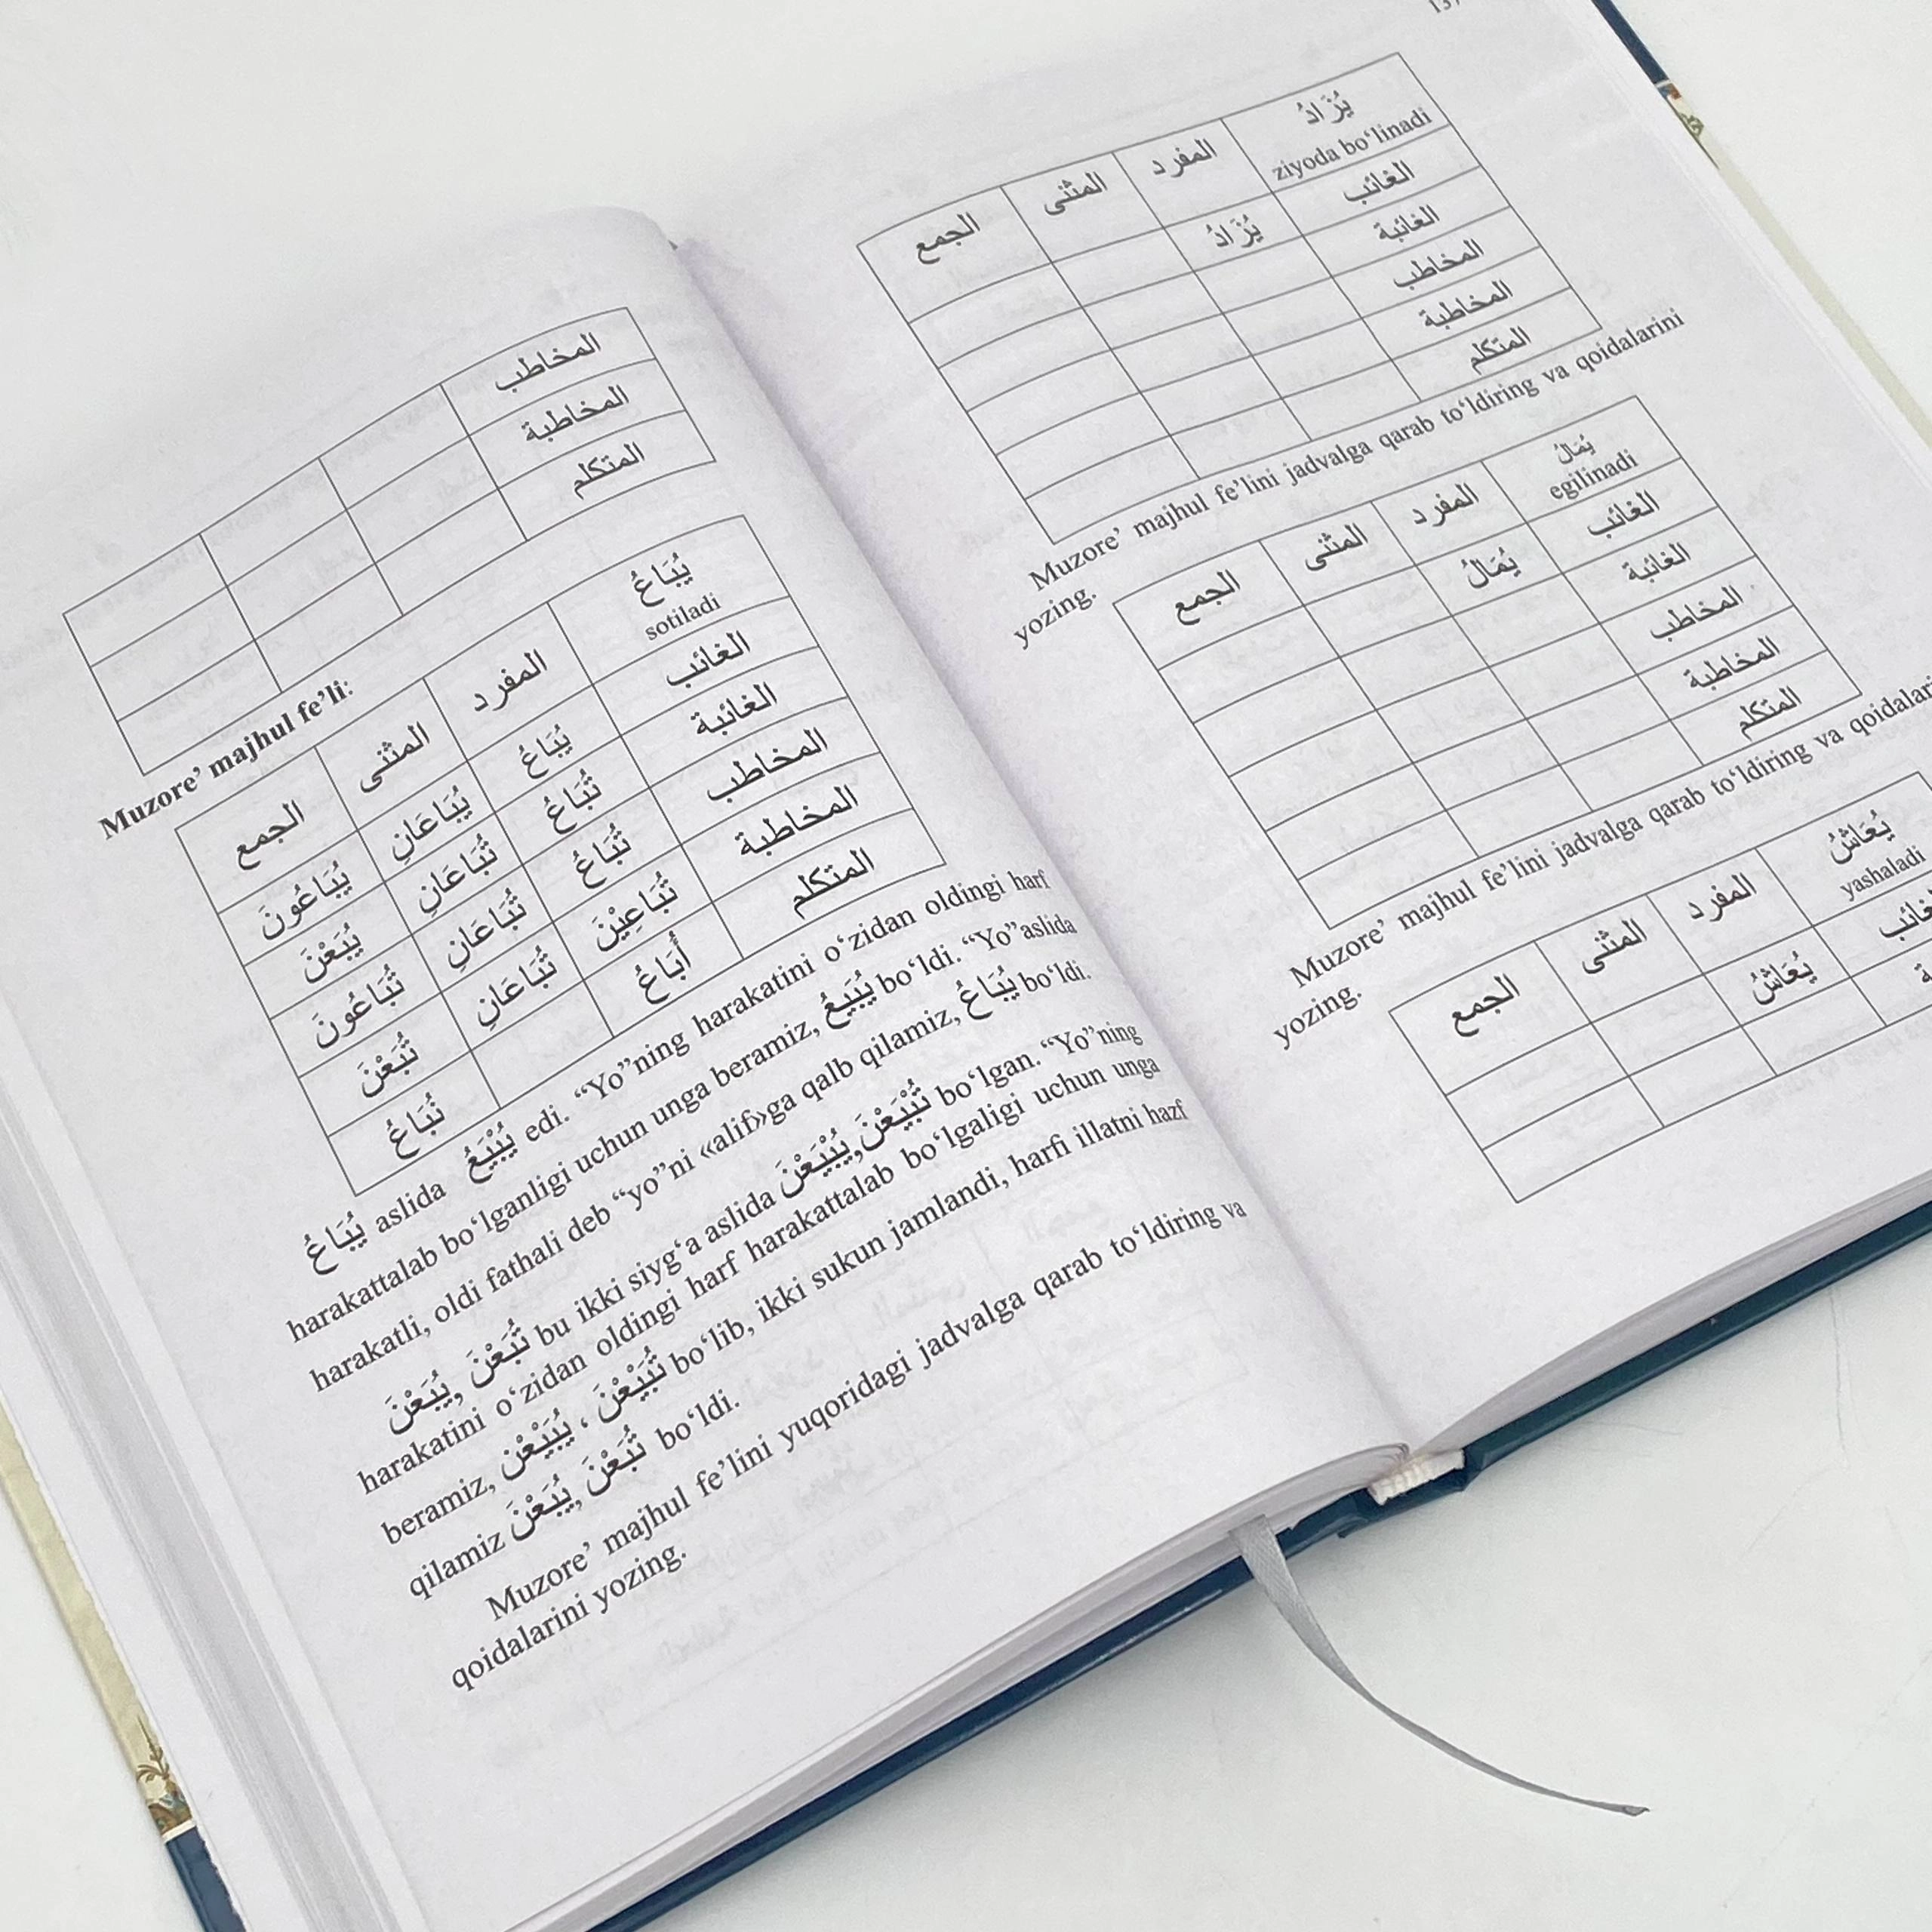 المخاطب
المخاطبة
المتكلم
Muzore’ majhul fe’li:
يُبَاعُ المفرد المثنى الجمع
sotiladi
الغائب يُبَاعُ يُبَاعَانِ يُبَاعُونَ
الغائبة تُبَاعُ تُبَاعَانِ يُبَعْنَ
المخاطب تُبَاعُ تُبَاعَانِ تُبَاعُونَ
المخاطبة تُبَاعِيْنَ تُبَاعَانِ تُبَعْنَ
المتكلم أُبَاعُ نُبَاعُ
يُبَاعُ aslida يُبْيَعُ edi. “Yo”ning harakatini o‘zidan oldingi harf
harakattalab bo‘lganligi uchun unga beramiz, يُبَيْعُ bo‘ldi. “Yo”aslida
harakatli, oldi fathali deb “yo”ni «alif»ga qalb qilamiz, يُبَاعُ bo‘ldi.
يُبَعْنَ, تُبَعْنَ bu ikki siyg‘a aslida يُبْيَعْنَ, تُبْيَعْنَ bo‘lgan. “Yo”ning
harakatini o‘zidan oldingi harf harakattalab bo‘lgaligi uchun unga
beramiz, يُبَيْعْنَ ، تُبَيْعْنَ bo‘lib, ikki sukun jamlandi, harfi illatni hazf
qilamiz يُبَعْنَ, تُبَعْنَ bo‘ldi.
Muzore’ majhul fe’lini yuqoridagi jadvalga qarab to‘ldiring va
qoidalarini yozing.
يُزَادُ المفرد المثنى الجمع
ziyoda bo‘linadi
الغائب يُزَادُ
الغائبة
المخاطب
المخاطبة
المتكلم
Muzore’ majhul fe’lini jadvalga qarab to‘ldiring va qoidalarini
yozing.
يُمَالُ المفرد المثنى الجمع
egilinadi
الغائب يُمَالُ
الغائبة
المخاطب
المخاطبة
المتكلم
Muzore’ majhul fe’lini jadvalga qarab to‘ldiring va
yozing.
يُعَاشُ المفرد المثنى الجمع
yashaladi
يُعَاشُ